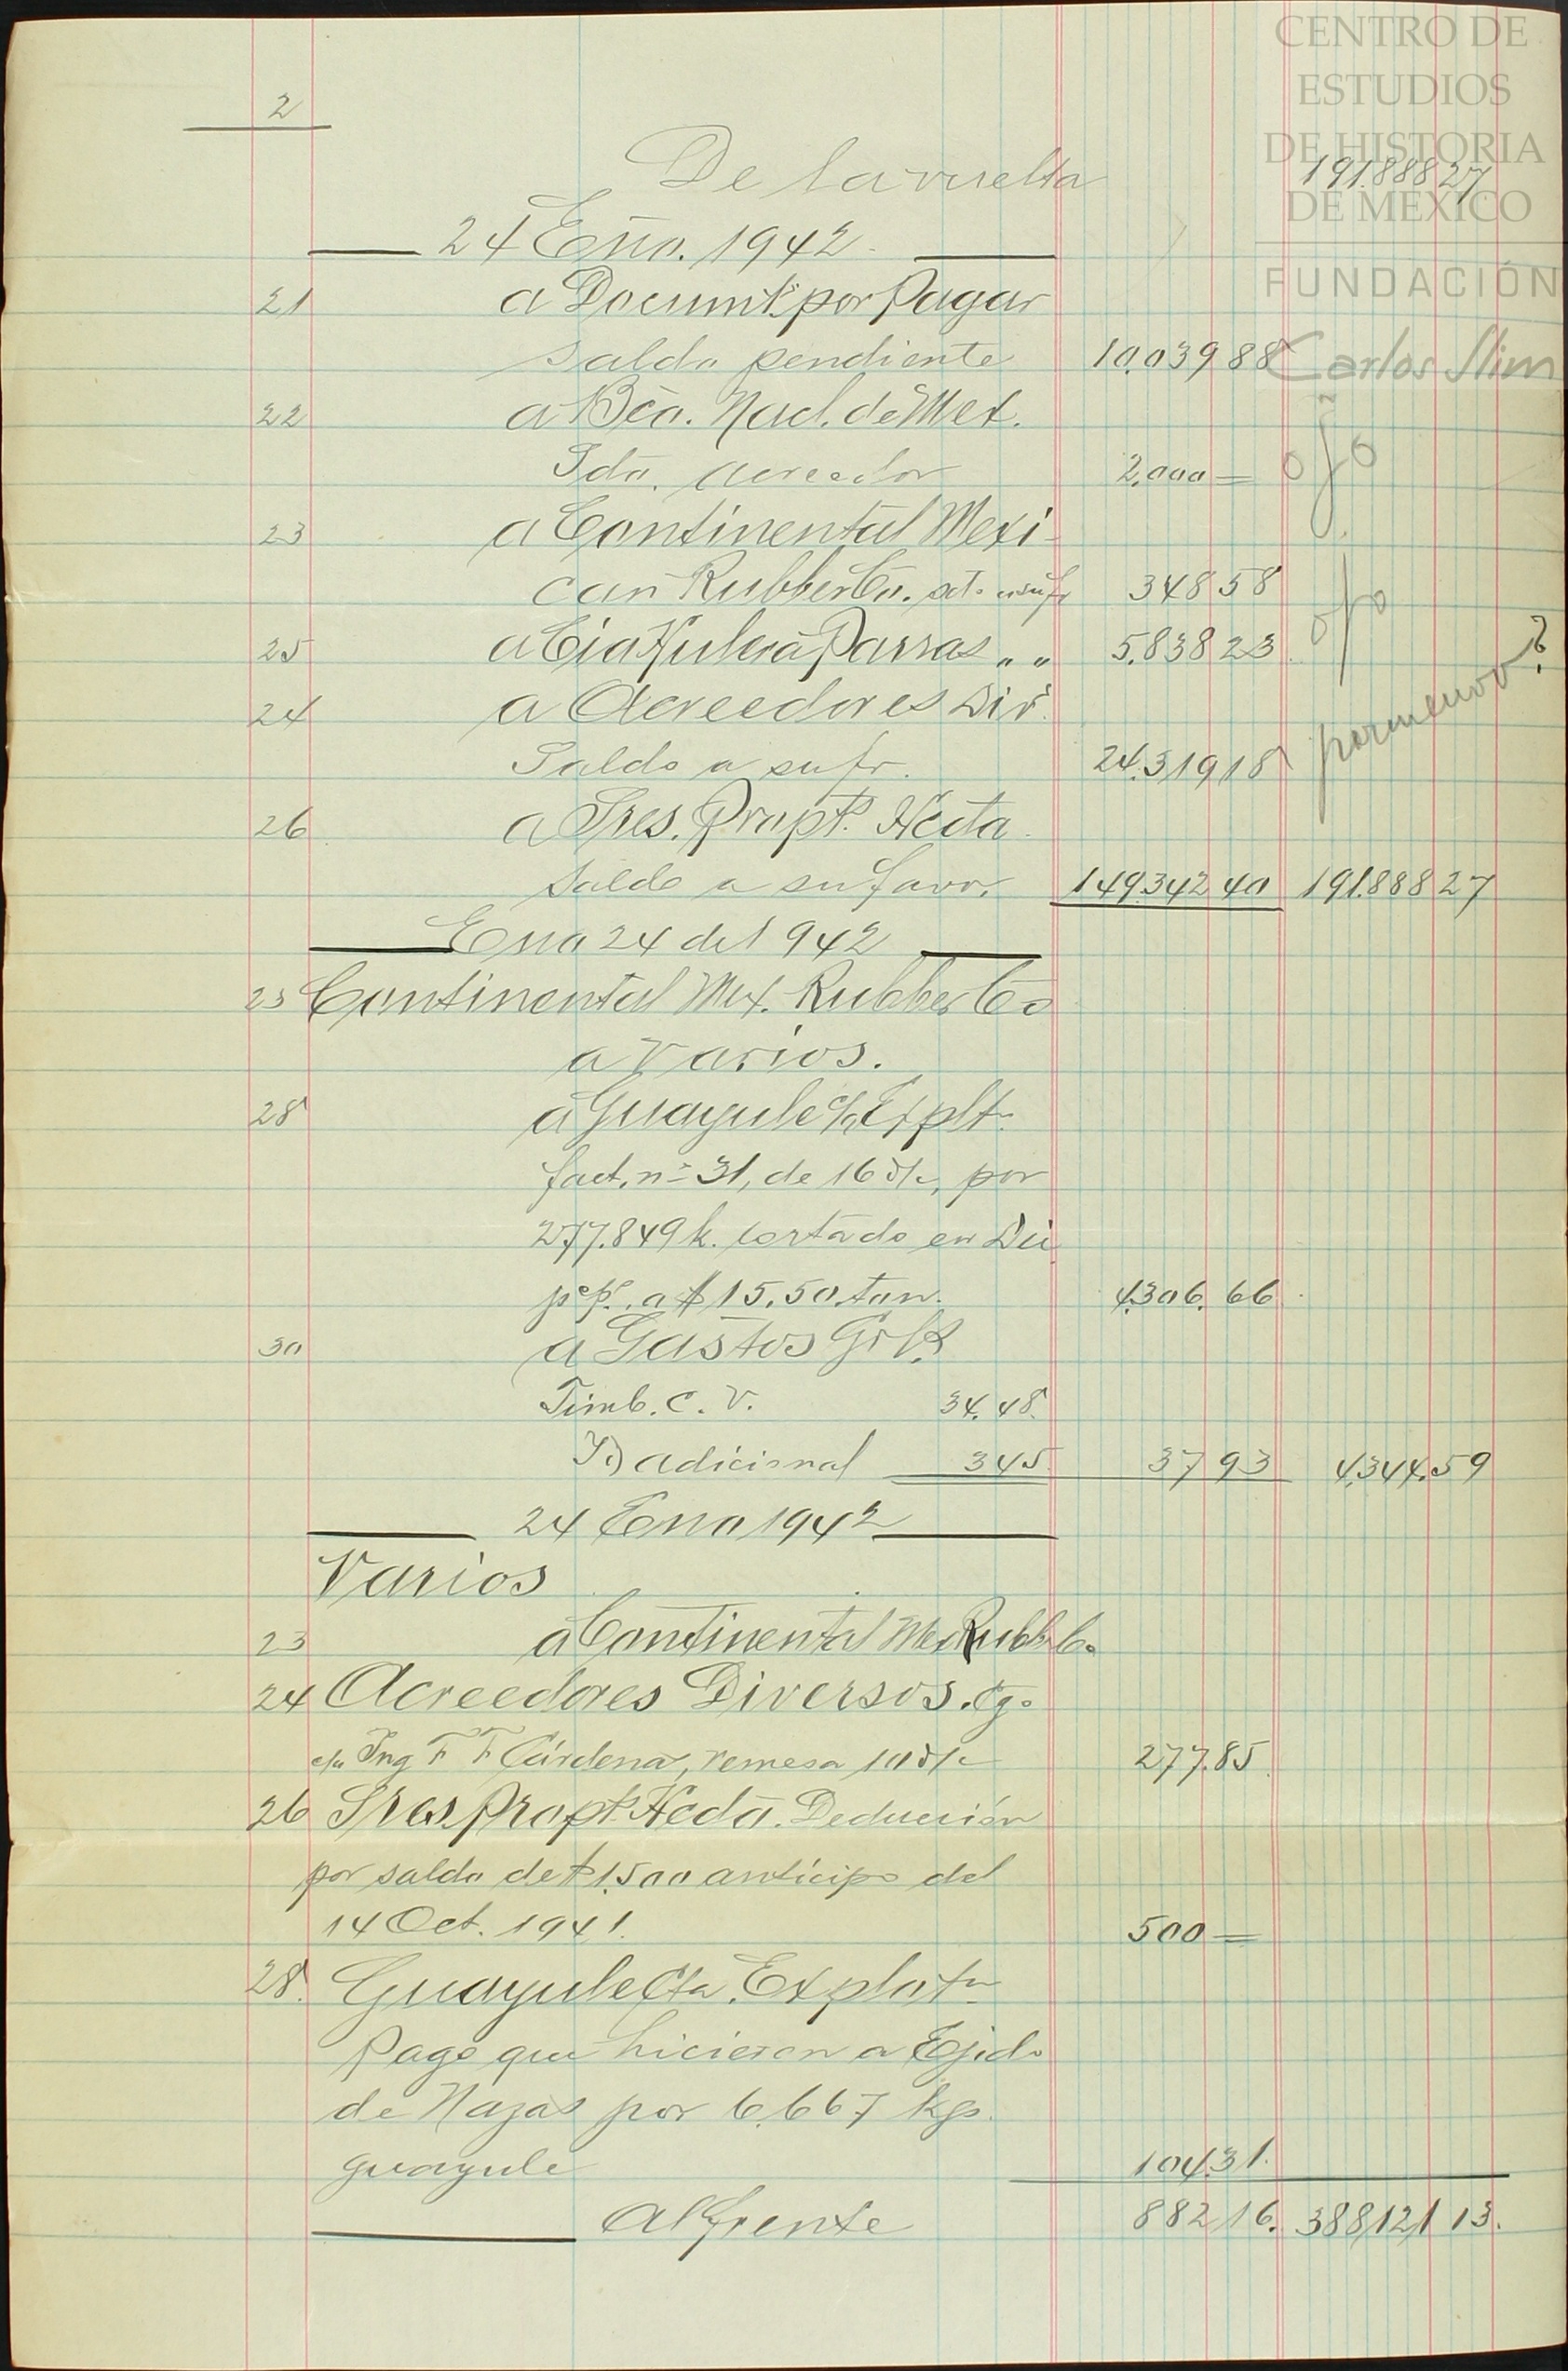 CENTRO DE
ESTUDIOS
DE HISTORIA
DE MEXICO
FUNDACIÓN
Carlos Slim
2
De la vuelta 191.888 27
24 Eno. 1942
21 a Documts. por Pagar
saldo pendiente 10.039 88
22 a Bco. Nacl. de Mex.
Sdo. acreedor 2.000 = ojo
23 a Continental Mexi-
can Rubber Co. sdo. a su fr 348 58
ojo
25 a Cia Hulera Parras " " 5.838 23
24 a Acreedores Div.
Saldo a su fr. 24.319 18 pormenor?
26 a Sres. Propts. Hcda.
Saldo a su favor. 149.342 40 191.888 27
Eno 24 de 1942
23 Continental Mex. Rubber Co
a Varios.
28 a Guayule c/ Explt.
fact. nº 31, de 16 d/c, por
277.849 k. cortado en Dic
pº pº. a $ 15.50 ton. 4.306. 66
30 a Gastos Grls
Timb. C. V. 34. 48.
Id adicional 3 45 37 93 4.344.59
24 Eno 1942
Varios
23 a Continental Mex Rubb. Co.
24 Acreedores Diversos. Cgo
c/a Ing F F Cárdenas, remesa 10 d/c 277.85
26 Sres. Propts. Hcda. Deducción
por saldo de $ 1.500 anticipo del
14 Oct. 1941. 500 =
28. Guayule Cta. Explot.
Pago que hicieron a Ejido
de Nazas por 6.667 kgs.
guayule 104.31.
Al frente 882 16. 388,121 13.